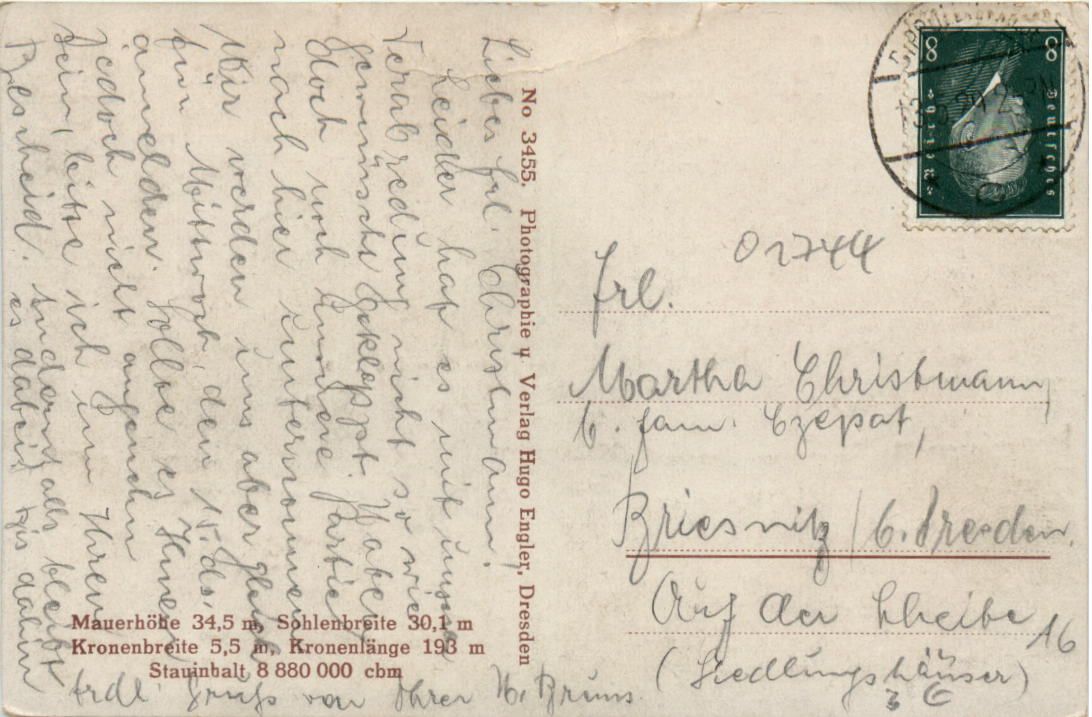 Liebes Frl. Christmann!
Leider hat es mit unserer
Verabredung nicht so wie
gewünscht geklappt. Haben
doch noch unsere Partie
nach hier unternommen.
Wir werden uns aber gleich
für Mittwoch, den 15. ds.
anmelden. Sollte es Ihnen
jedoch nicht angenehm
sein, bitte ich um Ihren
Bescheid. Andernfalls bleibt
es dabei. Bis dahin
frdl. Gruß von Ihrer H. Bruns.
No 3455. Photographie u. Verlag Hugo Engler, Dresden
Mauerhöhe 34,5 m, Sohlenbreite 30,1 m
Kronenbreite 5,5 m, Kronenlänge 193 m
Stauinhalt 8 880 000 cbm
8 8
Deutsches
Reich
02744
Frl.
Martha Christmann,
b. Fam. Czepat,
Briesnitz / b. Dresden.
Auf der Scheibe 16
(Siedlungshäuser)
3 C